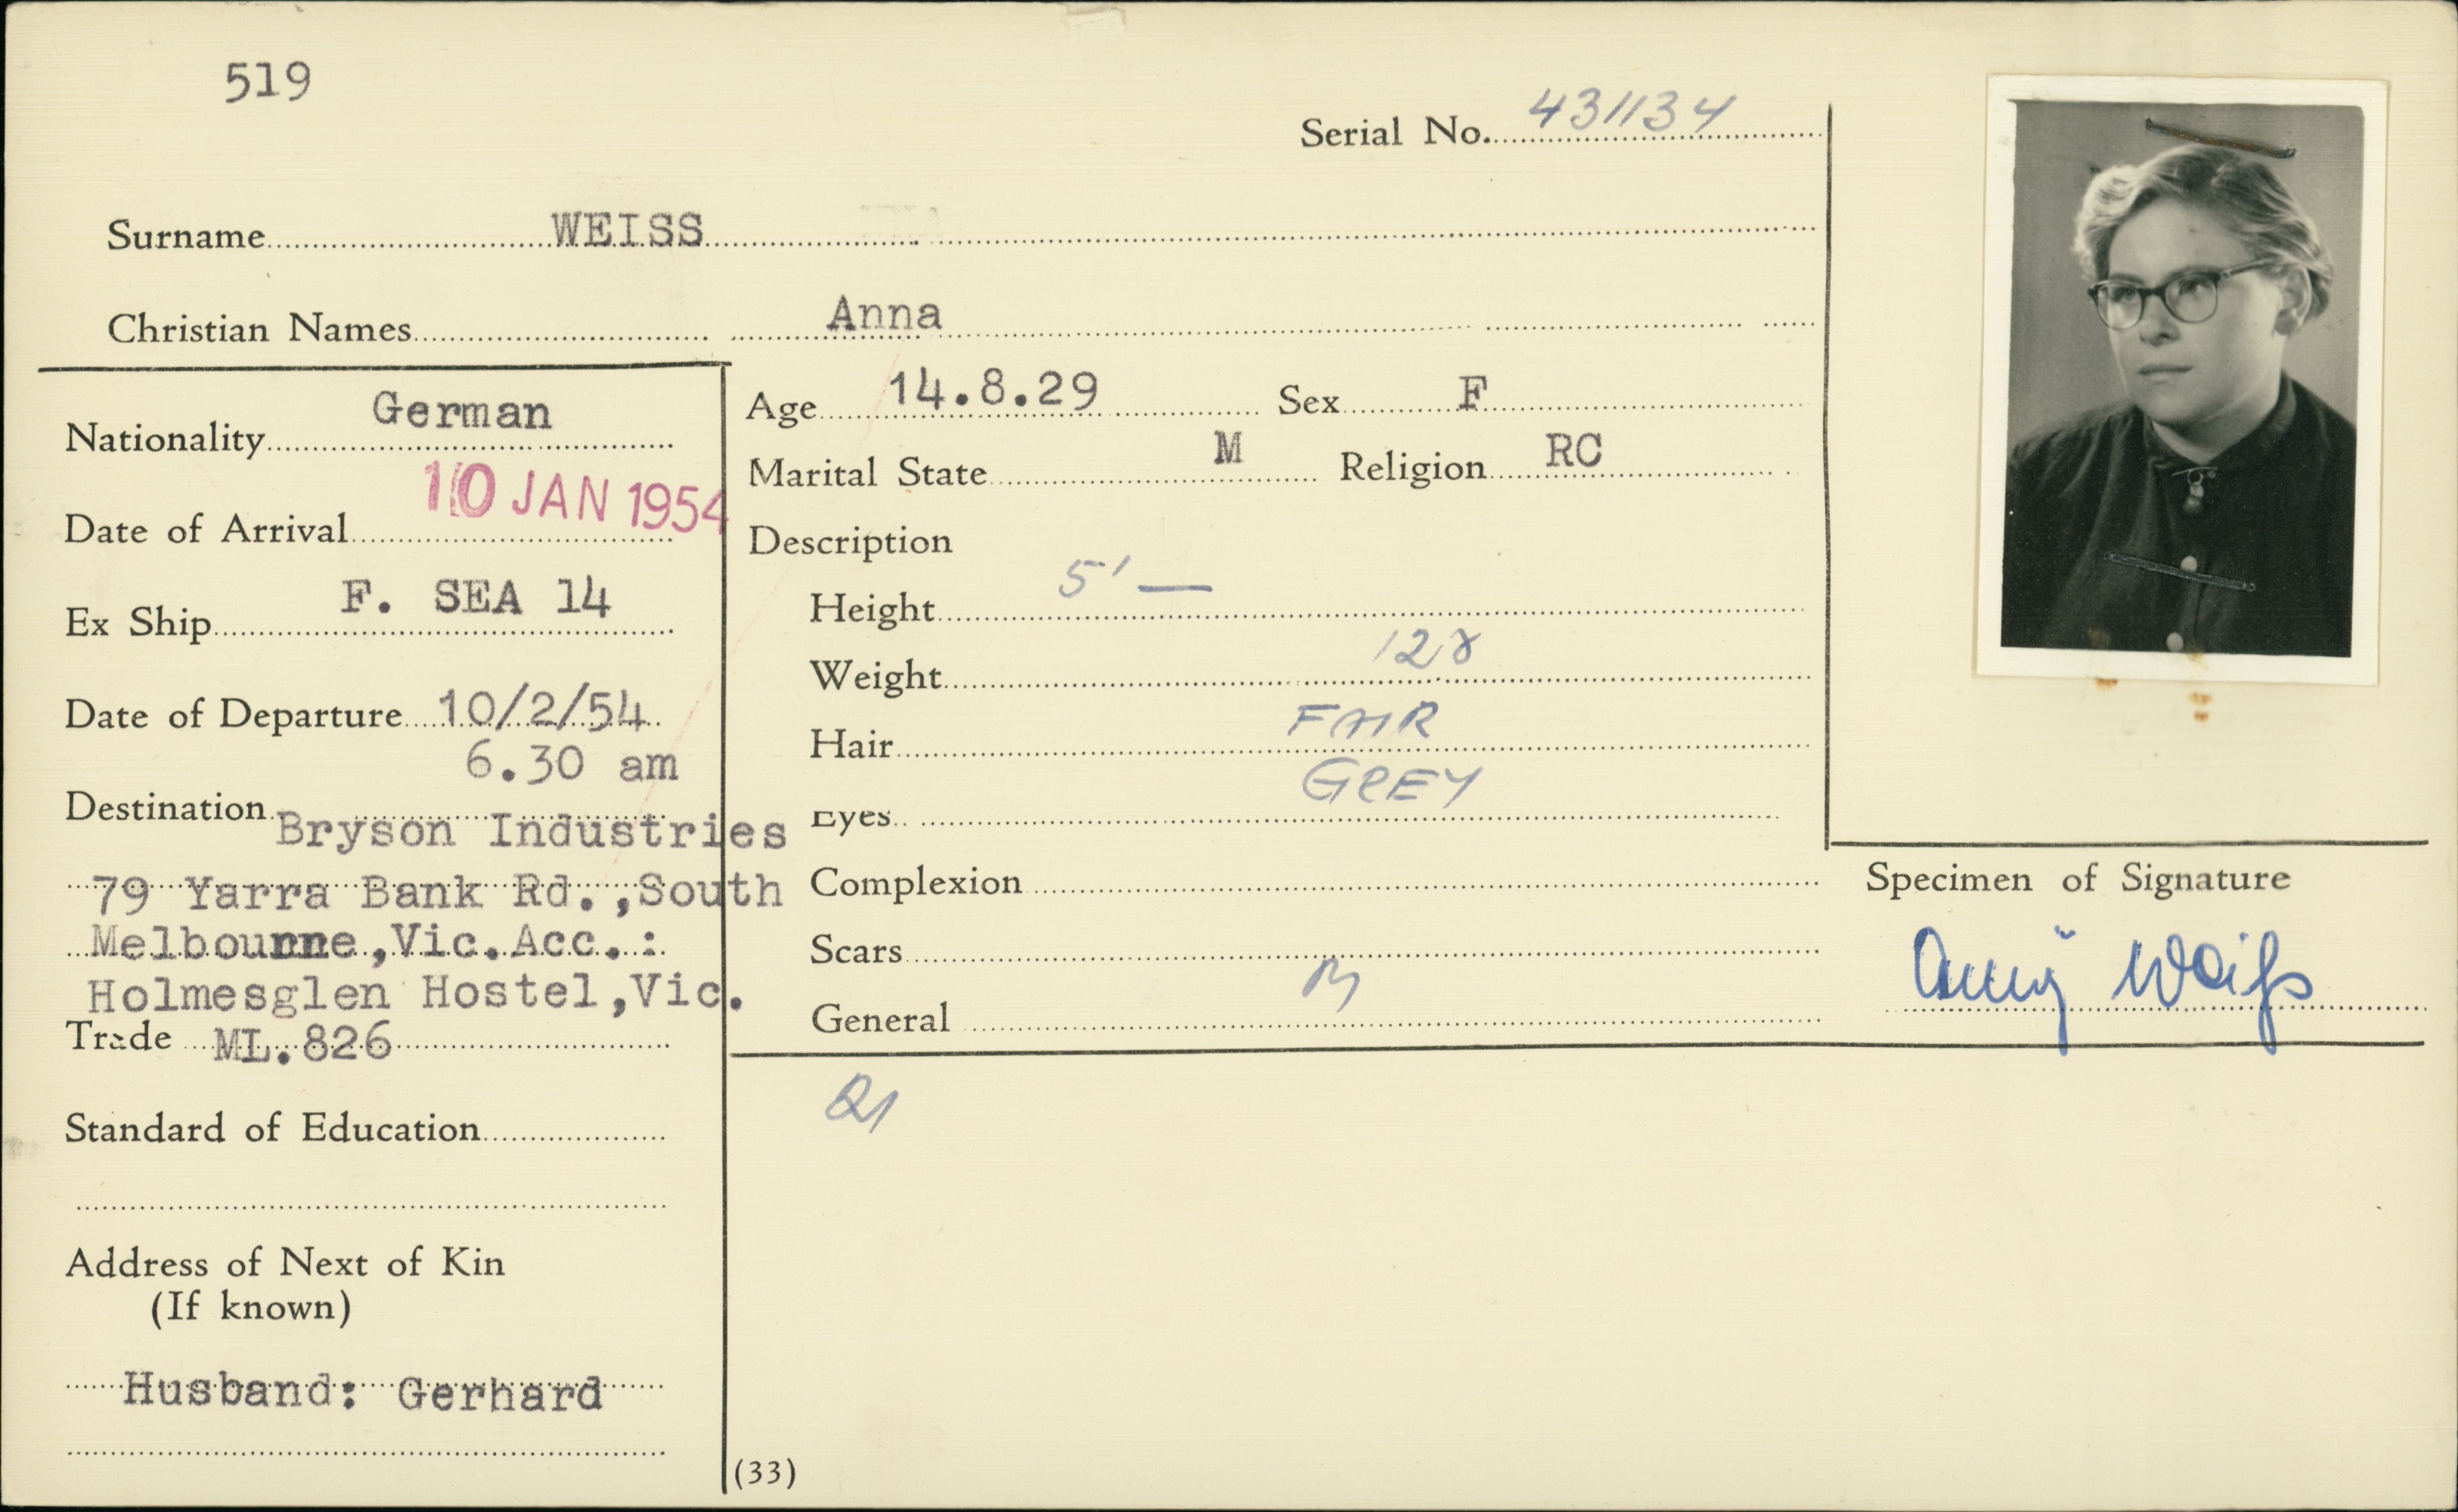 519
Serial No. 431134
Surname WEISS
Christian Names Anna
Nationality German
Date of Arrival 10 JAN 1954
Ex Ship F. SEA 14
Date of Departure 10/2/54
6.30 am
Destination Bryson Industries
79 Yarra Bank Rd.,South
Melbourne,Vic.Acc.:
Holmesglen Hostel,Vic.
Trade ML.826
Standard of Education
Address of Next of Kin
(If known)
Husband: Gerhard
Age 14.8.29 Sex F
Marital State M Religion RC
Description
Height 5' —
Weight 128
Hair FAIR
Eyes GREY
Complexion
Scars
General M
(33)
Specimen of Signature
Anny Weiß